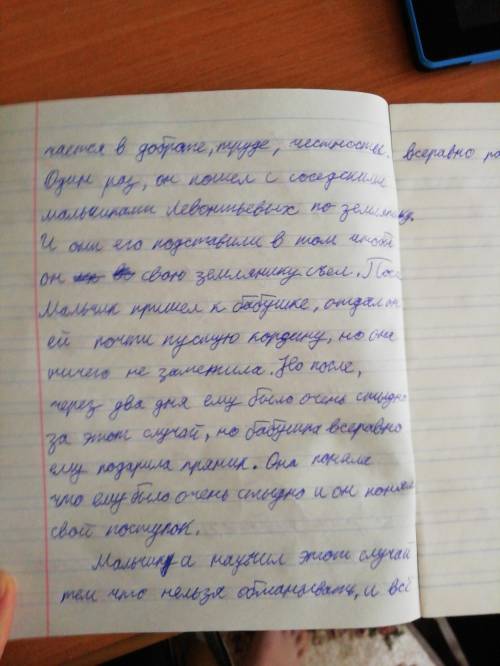 чается в доброте, труде, честности. всеравно по
Один раз, он пошел с соседскими
мальчиками Левонтьевых по землянику.
И они его подставили в том чтобы
он свою землянику съел. После
Мальчик пришел к бабушке, отдал он
ей почти пустую кордину, но она
ничего не заметила. Но после,
через два дня ему было очень стыдно
за этот случай, но бабушка всеравно
ему подарила пряник. Она поняла
что ему было очень стыдно и он понял
свой поступок.
Мальчика научил этот случай
тем что нельзя обманывать, и всё